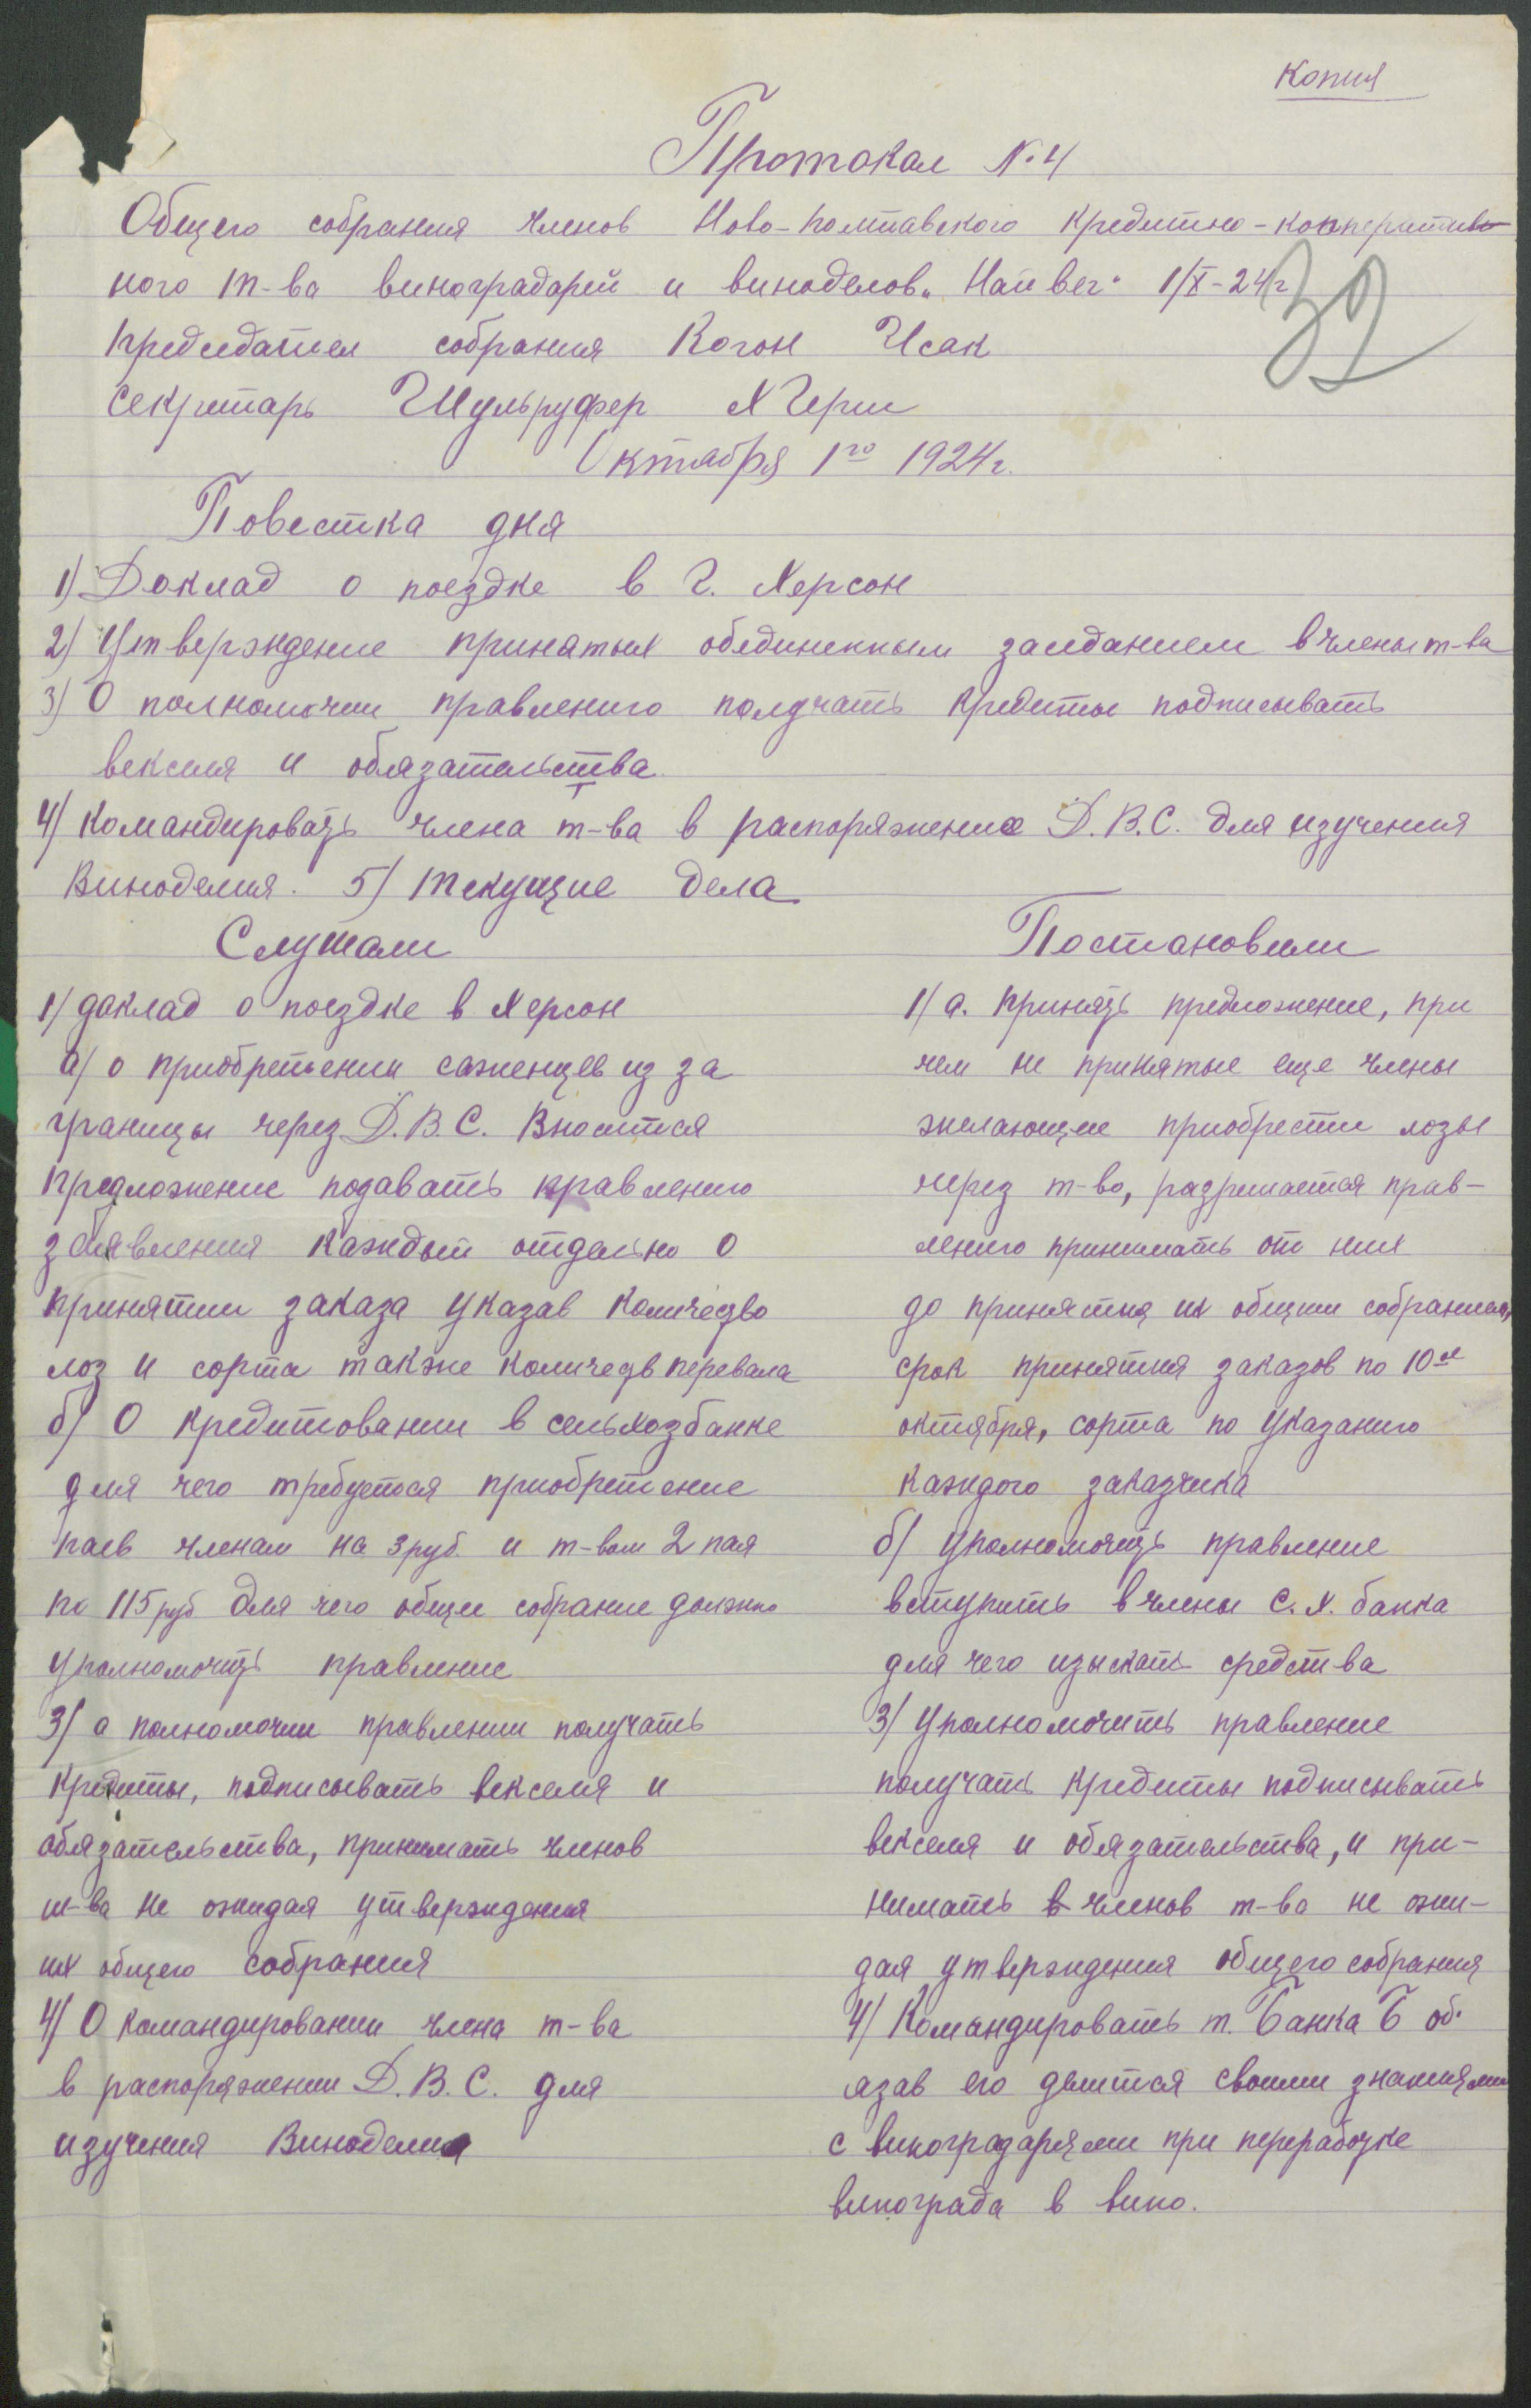 Копия
Протокол №4
Общего собрания членов Ново-Полтавского кредитно-кооператив
ного т-ва виноградарей и виноделов „Найвег" 1/X-24г
39
Председател собрания Когон Исак
Секретарь Шульруфер
Октября 1го 1924г.
Повестка дня
1) Доклад о поездке в г. Херсон
2) Утверждение принятых обединенным заседанием в члены т-ва
3) О полномочии правлению получать кредиты подписывать
векселя и обязательства
4) Командировать члена т-ва в распоряжение Д.В.С. для изучения
Виноделия. 5) Текущие дела
Слушали
1) доклад о поездке в Херсон
а) о приобретении саженцев из за
границы через Д.В.С. Вносится
предложение подавать правлению
заявления каждый отдельно о
принятии заказа указав количедво
лоз и сорта также количедв перевала
б) О кредитовании в сельхозбанке
для чего требуется приобретение
паев членам на 3 руб. и т-вом 2 пая
по 115 руб для чего общее собрание должно
уполномочить правление
3) о полномочии правлении получать
кредиты, подписывать векселя и
обязательства, принимать членов
т-ва не ожидая утверждения
их общего собрания
4) О командировании члена т-ва
в распоряжении Д.В.С. для
изучения Виноделия
Постановили
1) а. Принять предложение, при
чем не принятые еще члены
желающие приобрести лозы
через т-во, разрешается прав-
лению принимать от них
до принятия их общим собранием,
срок принятия заказов по 10ое
октября, сорта по указанию
каждого заказчика
б) уполномочить правление
вступить в члены С.Х. банка
для чего изыскать средства
3) Уполномочить правление
получать кредиты подписывать
векселя и обязательства, и при-
нимать в членов т-ва не ожи-
дая утверждения общего собрания
4) Командировать т. Банка Б об.
язав его делится своими знаниями
с виноградарями при переработке
винограда в вино.